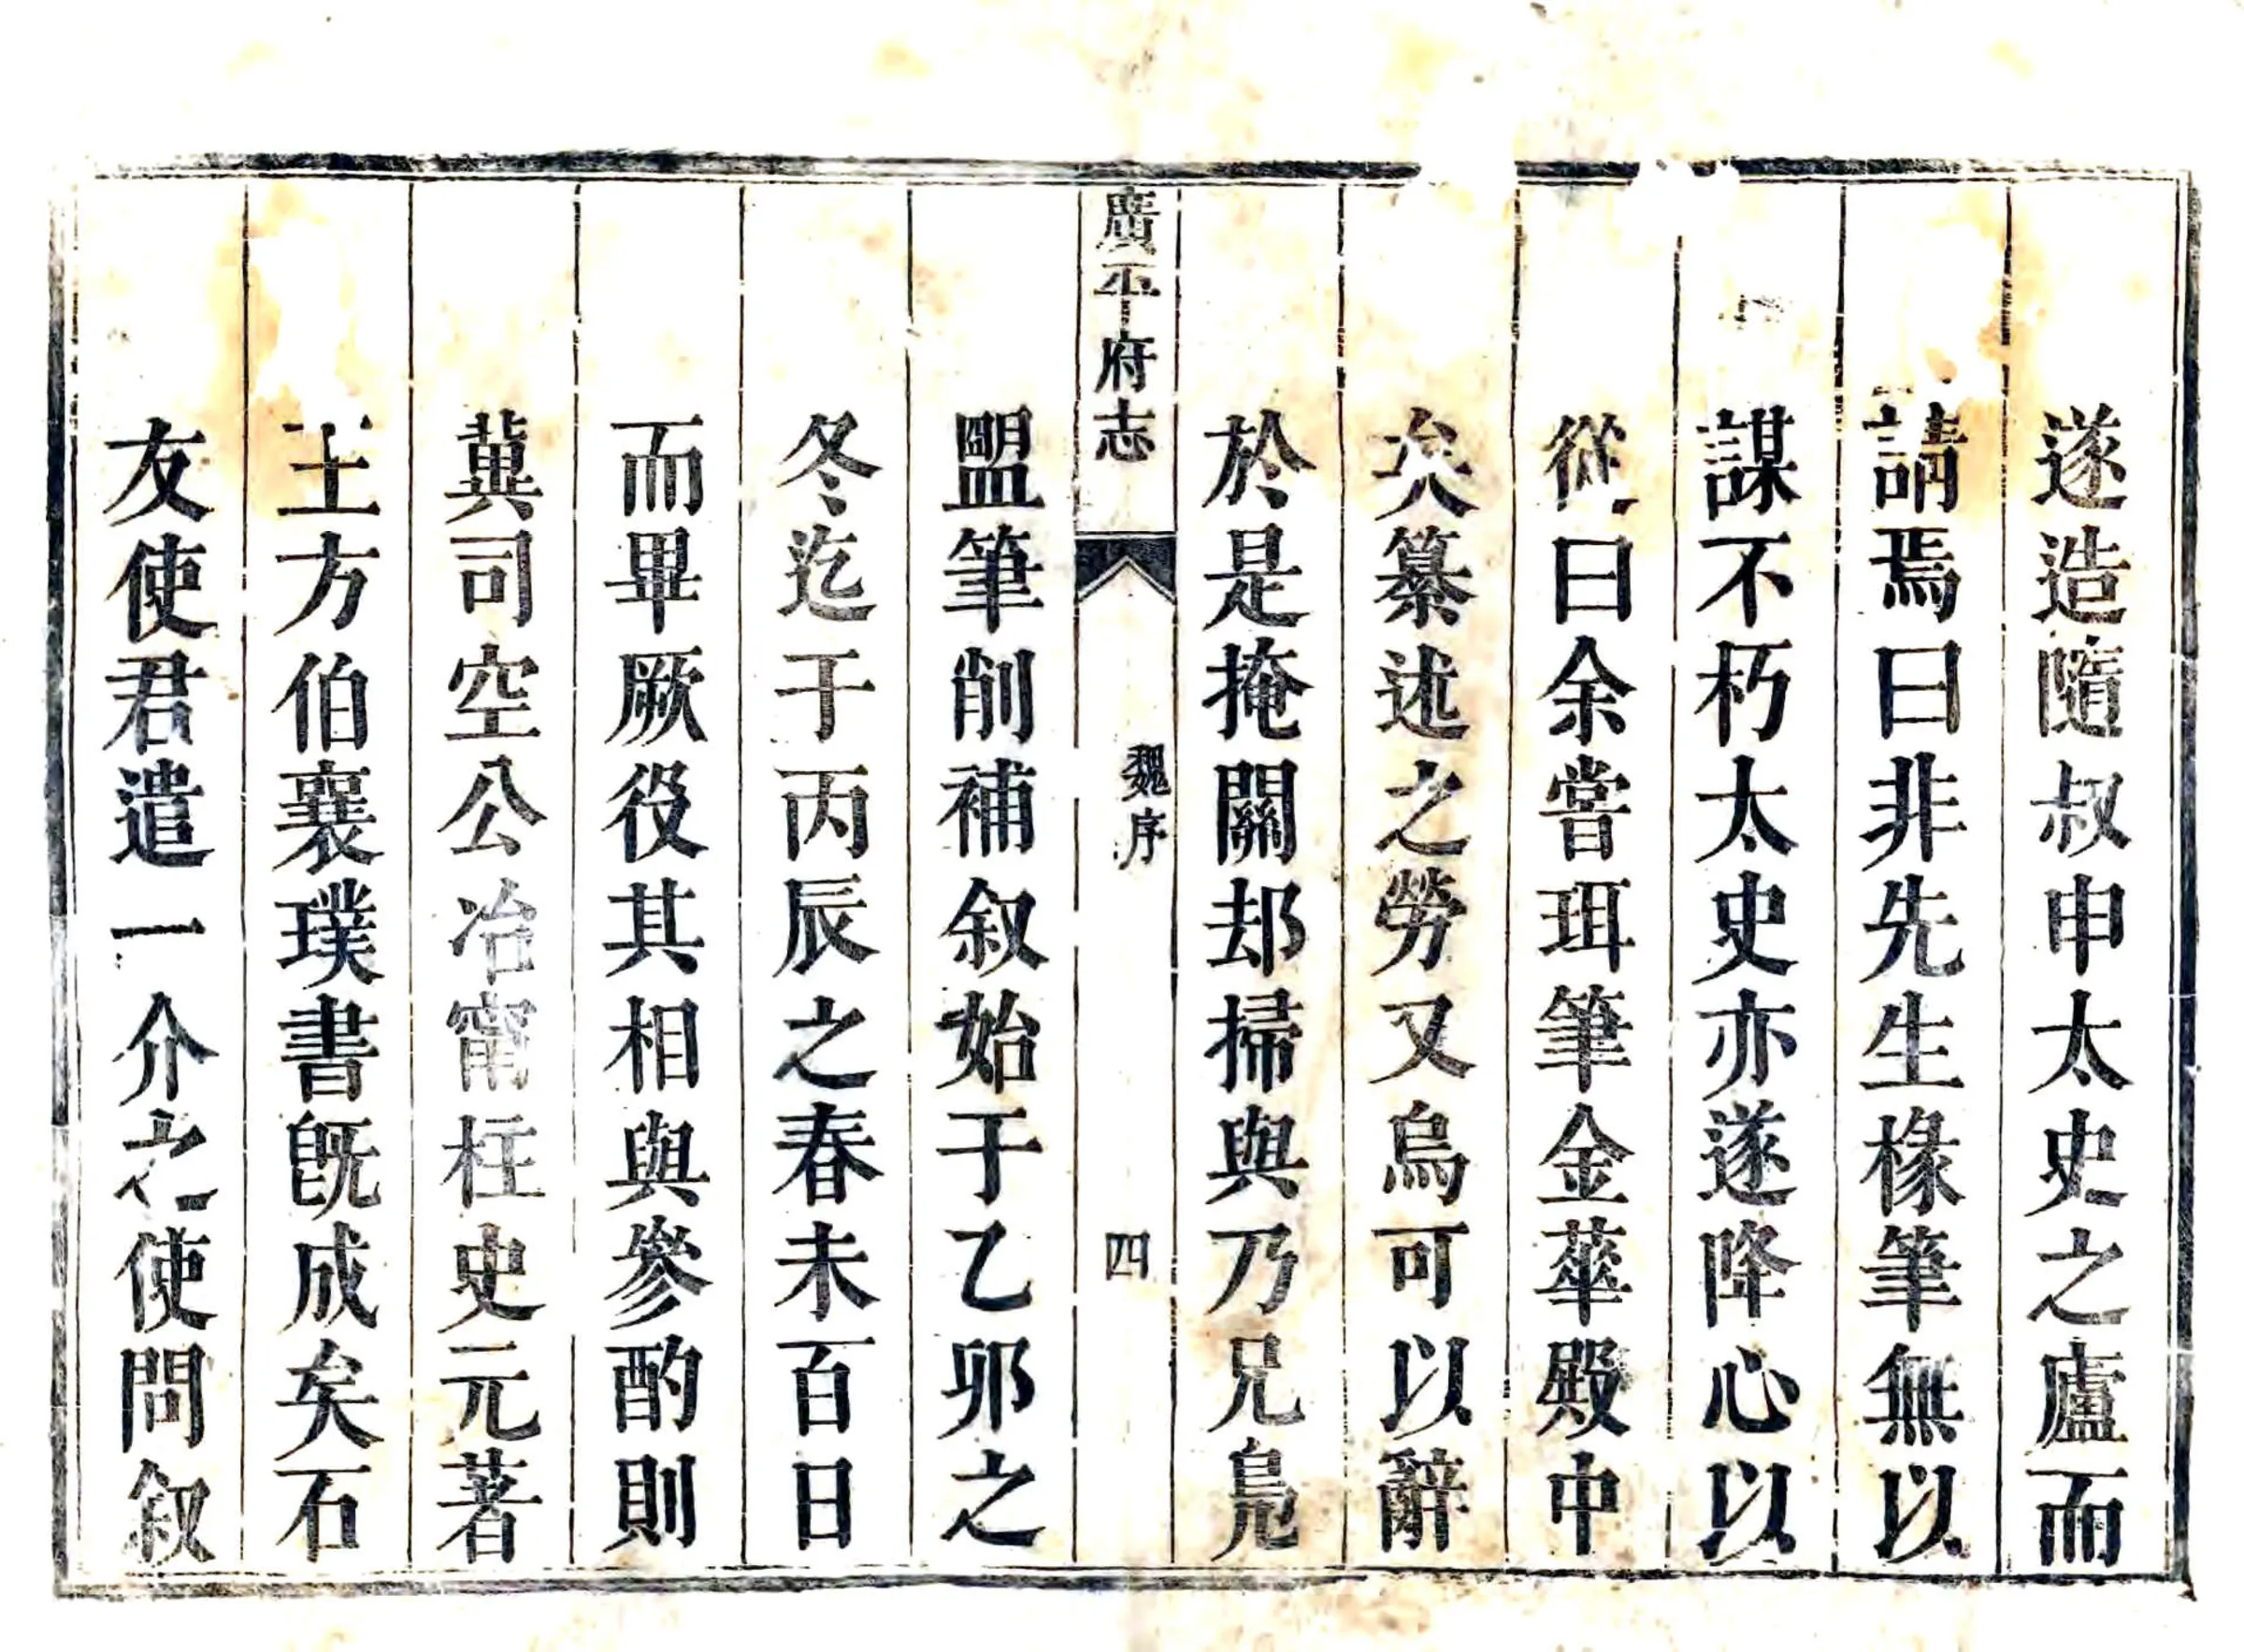 遂造隨叔申太史之廬而
請焉曰非先生椽筆無以
謀不朽太史亦遂降心以
從曰余嘗珥筆金華殿中
矣纂述之勞又烏可以辭
於是掩關却掃與乃兄鳧
廣平府志 魏序 四
盟筆削補叙始于乙卯之
冬迄于丙辰之春未百日
而畢厥役其相與參酌則
冀司空公冶甯柱史元著
王方伯襄璞書旣成矣石
友使君遣一介之使問叙